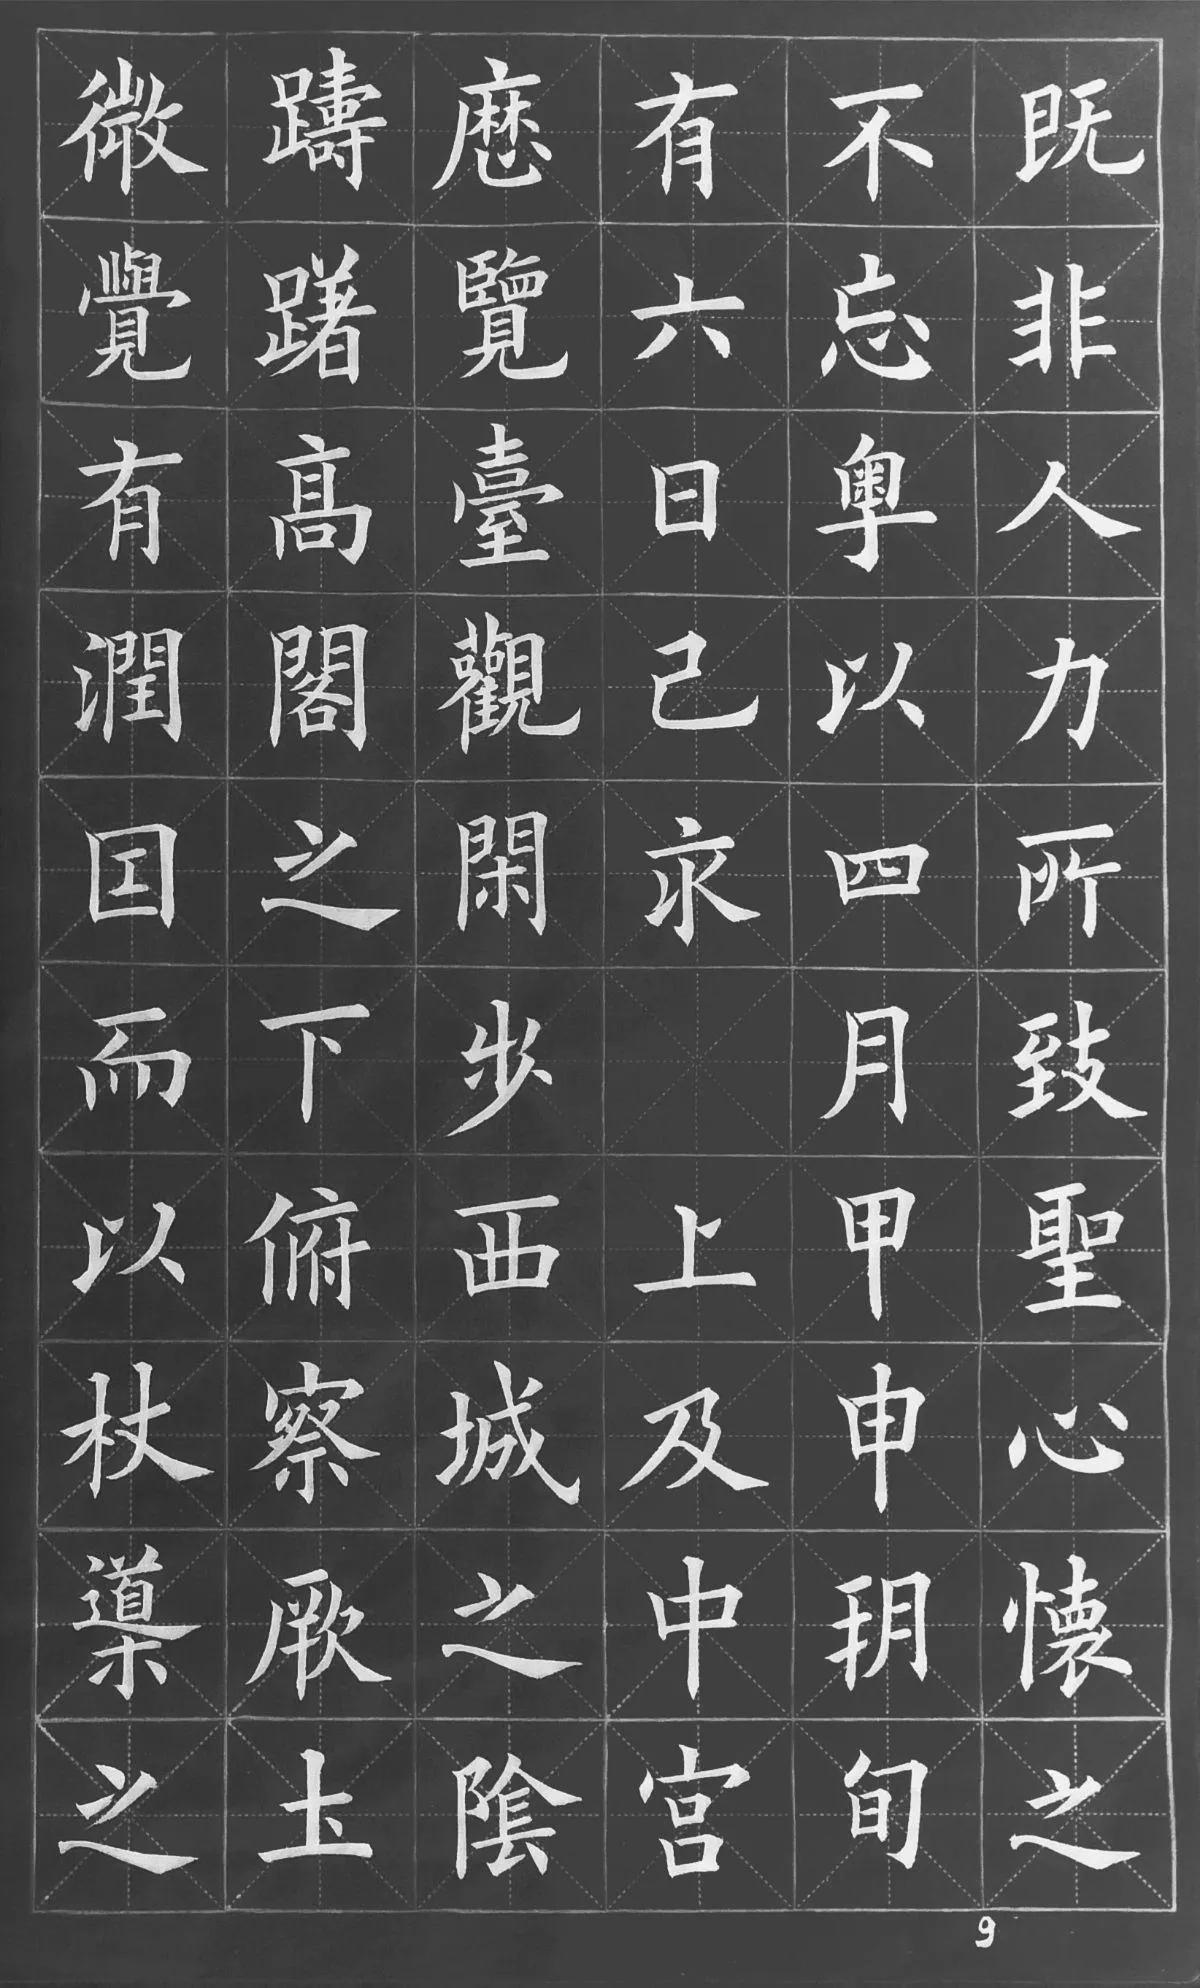 既非人力所致聖心懷之
不忘粤以四月甲申朔旬
有六日己亥 上及中宫
歷覽臺觀閑步西城之陰
躊躇高閣之下俯察厥土
微覺有潤因而以杖導之
9